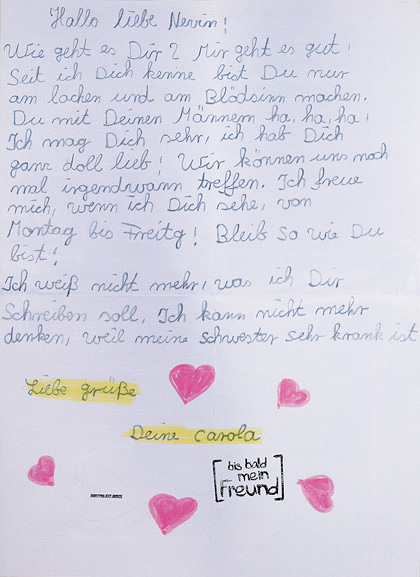 Hallo liebe Nervin!
Wie geht es Dir? Mir geht es gut!
Seit ich Dich kenne bist Du nur
am lachen und am Blödsinn machen.
Du mit Deinen Männern ha, ha, ha!
Ich mag Dich sehr, ich hab Dich
ganz doll lieb! Wir können uns noch
mal irgendwann treffen. Ich freue
mich, wenn ich Dich sehe, von
Montag bis Freitg! Bleib so wie Du
bist!
Ich weiß nicht mehr, was ich Dir
Schreiben soll, Ich kann nicht mehr
denken, weil meine schwester sehr krank ist
Liebe grüße
Deine carola
bis bald
mein
Freund